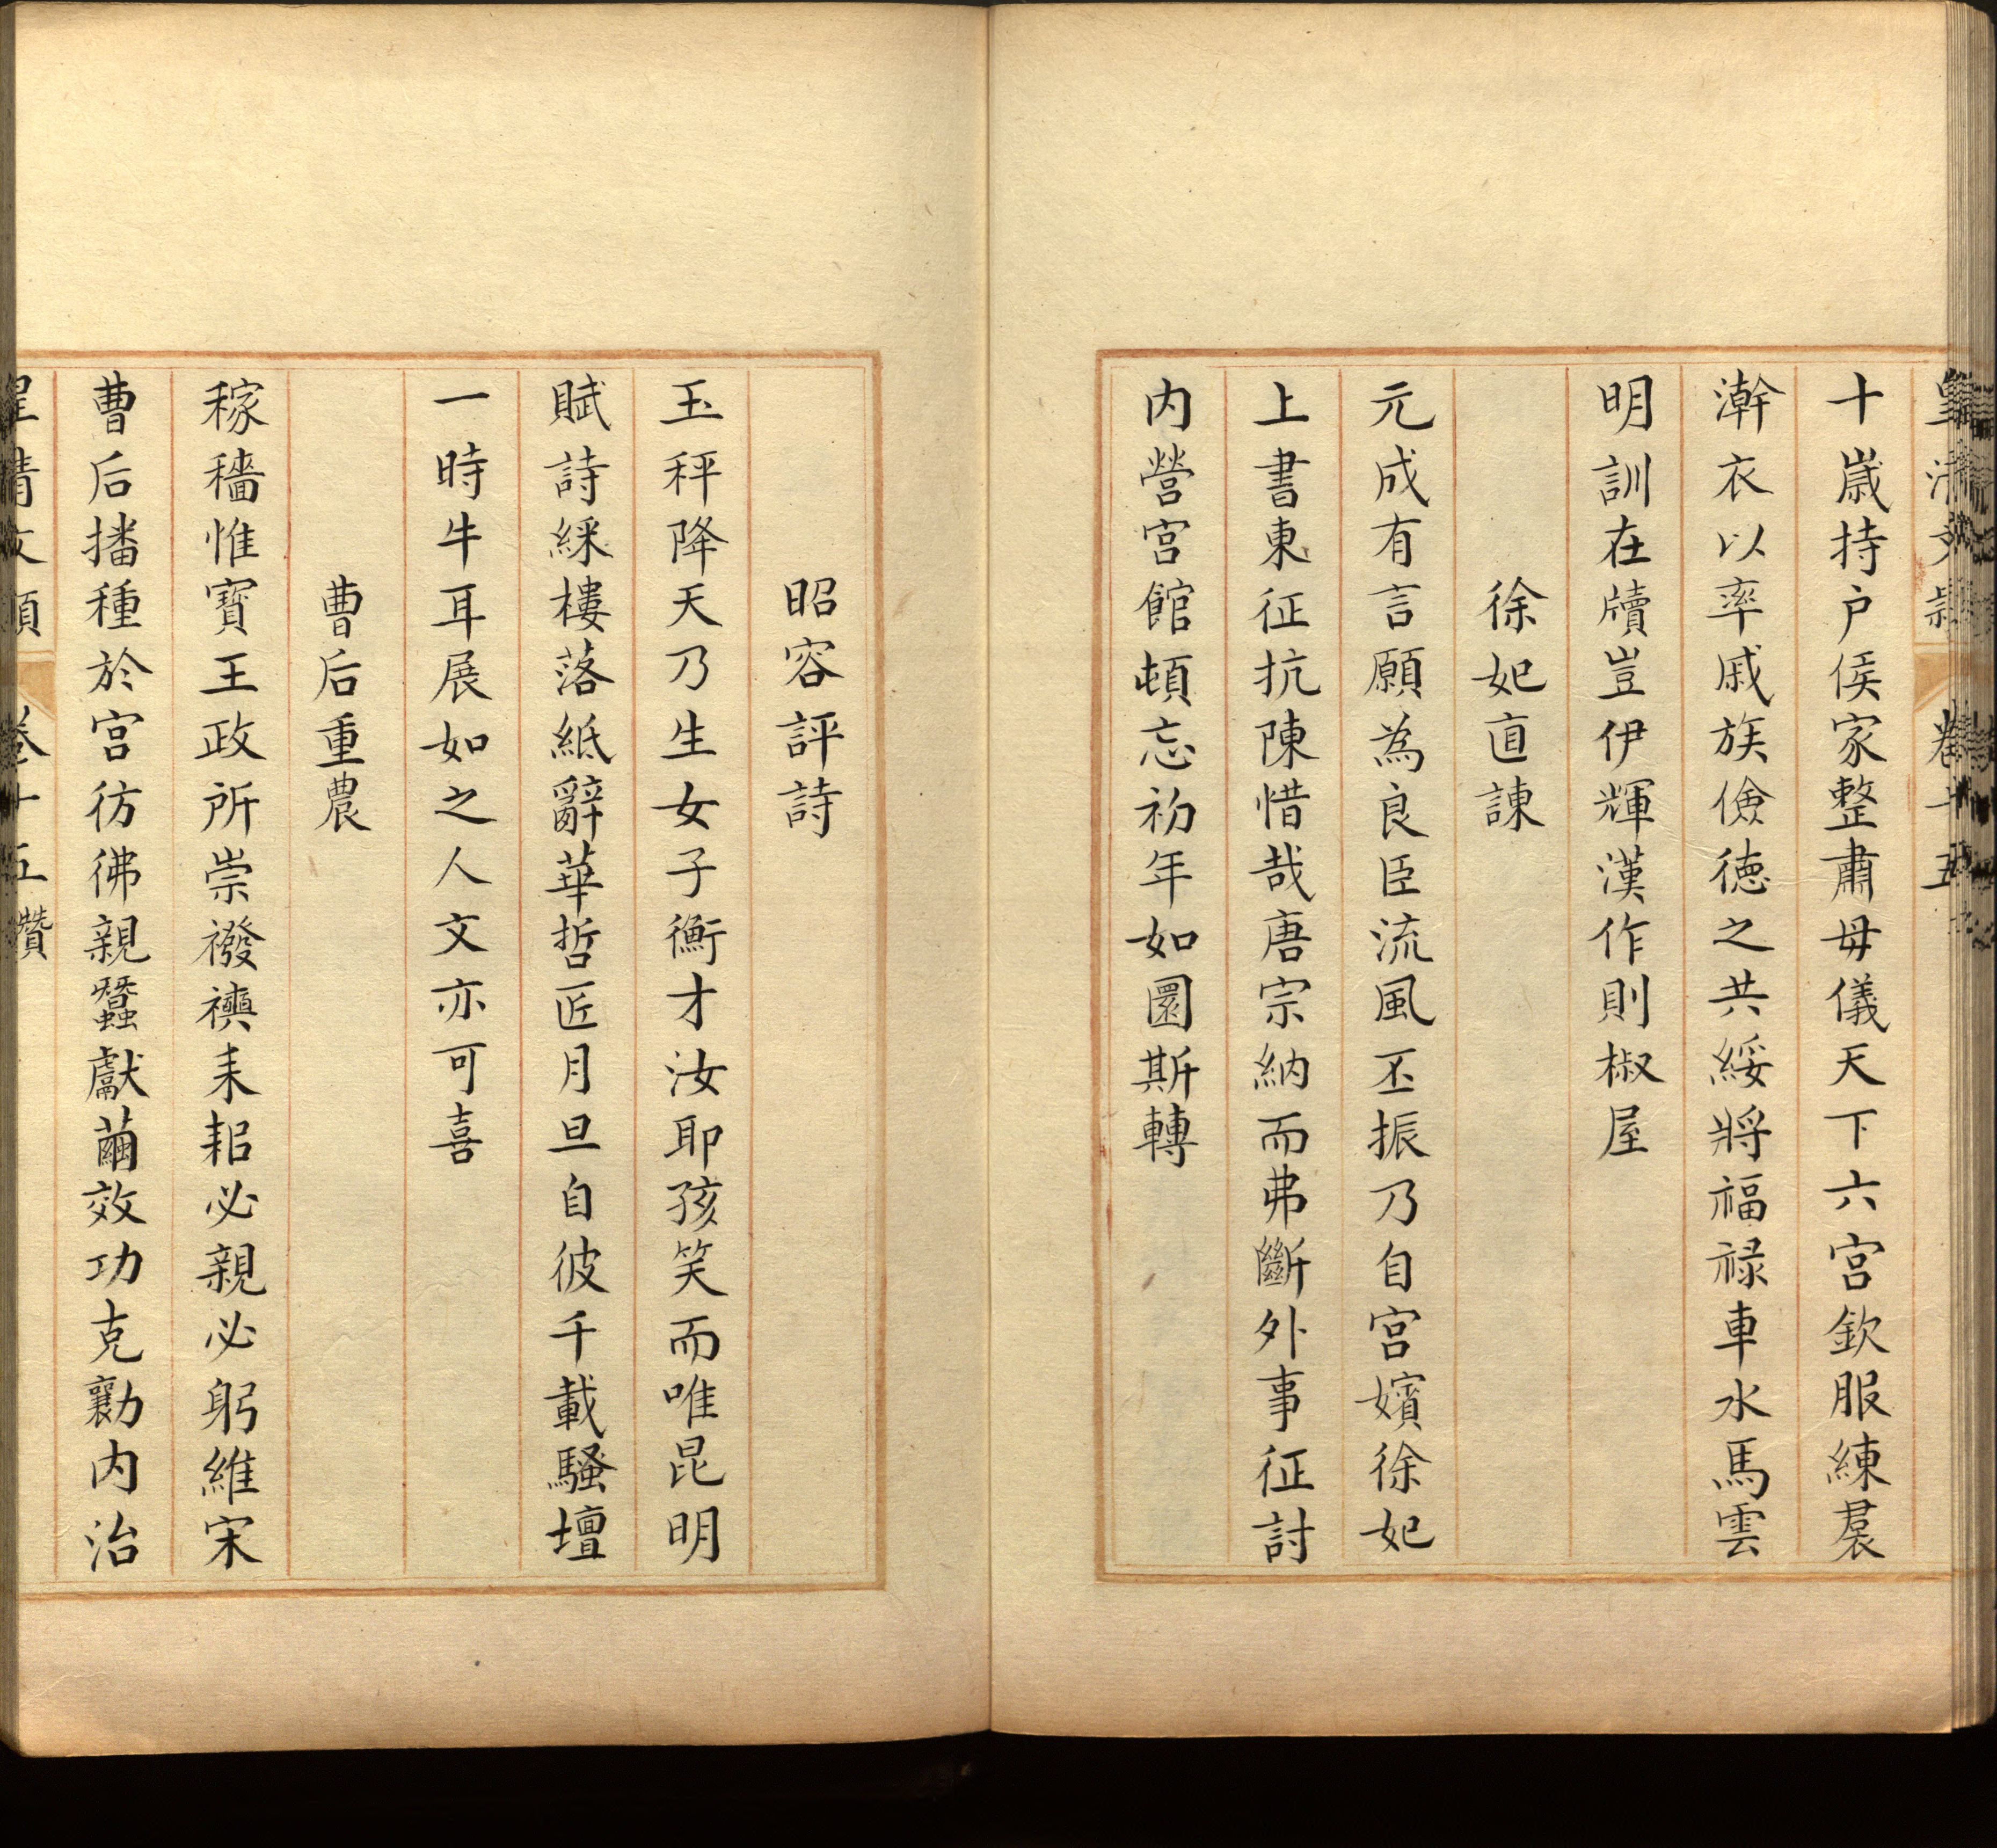 皇清文穎 卷十五
十嵗持户侯家整肅毋儀天下六宫欽服練裠
澣衣以率戚族儉徳之共綏將福禄車水馬雲
明訓在牘豈伊輝漢作則椒屋
徐妃直諫
元成有言願為良臣流風丕振乃自宫嬪徐妃
上書東征抗陳惜哉唐宗納而弗斷外事征討
内營宫館頓忘初年如圜斯轉
昭容評詩
玉秤降天乃生女子衡才汝耶孩笑而唯昆明
賦詩綵樓落紙辭華哲匠月旦自彼千載騷壇
一時牛耳展如之人文亦可喜
曹后重農
稼穡惟寳王政所崇襏襫耒耜必親必躬維宋
曹后播種於宫彷彿親蠶獻繭效功克勷内治
皇清文穎 卷十五 讚